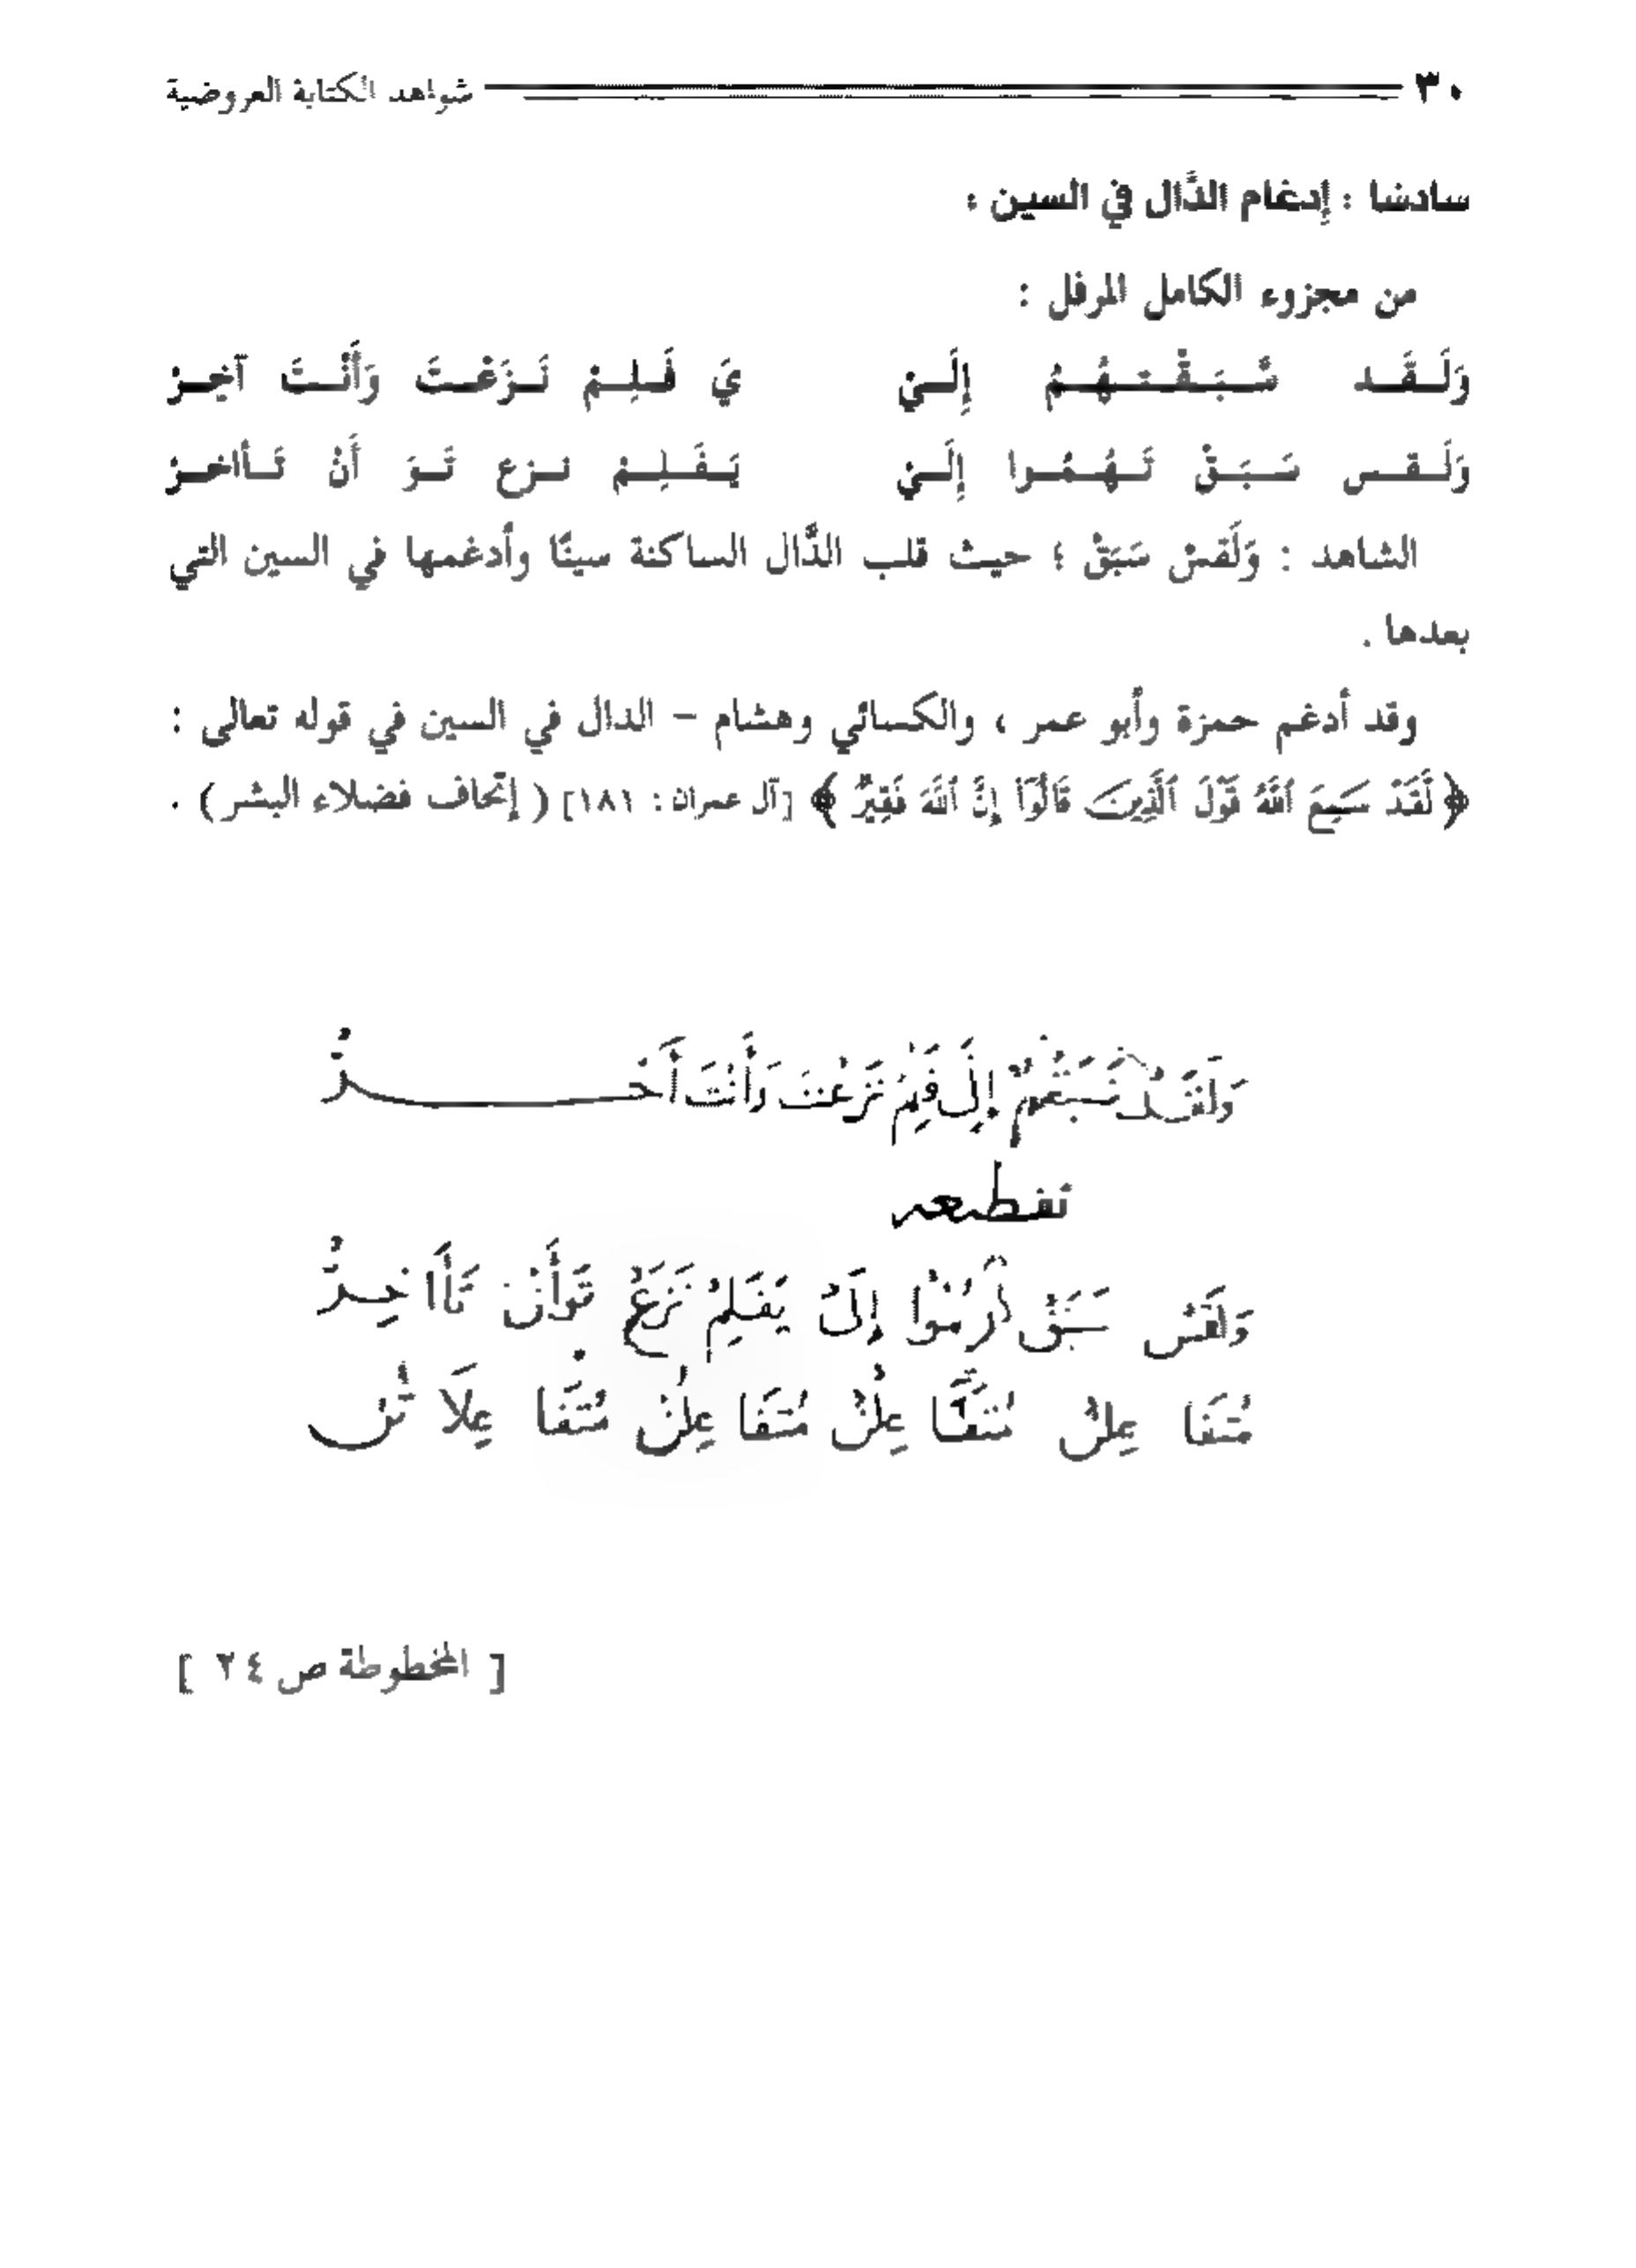 ٣٠ شواهد الكتابة العروضية
سادسًا : إدغام الدَّال في السين :
من مجزوء الكامل المرفل :
وَلَـقَـد سَّـبَـقْـتـهُـمْ إِلَـيْ يَ فَـلِـمْ نَـزَعْـتَ وَأَنْـتَ آخِـرْ
وَلَـقـس سَـبَـقْ تَـهُـمُـوا إِلَـيْ يَـفَـلِـمْ نـزع تَـوَ أَنْ تَـأاخـرْ
الشاهد : وَلَقسْ سَبَقْ ؛ حيث قلب الدَّال الساكنة سينًا وأدغمها في السين التي
بعدها .
وقد أدغم حمزة وأبو عمر ، والكسائي وهشام – الدال في السين في قوله تعالى :
﴿ لَّقَدْ سَمِعَ ٱللَّهُ قَوْلَ ٱلَّذِينَ قَالُوٓاْ إِنَّ ٱللَّهَ فَقِيرٌ ﴾ [آل عمران : ١٨١] ( إتحاف فضلاء البشر) .
وَلَقَد سَّبَقْتَهُمْ إِلَي فَلِمْ نَزَعْتَ وَأَنْتَ آخِـرُ
تقطيعه
وَلَقَسْ سَبَقْ تَهُمُوْا إِلَيْ يَفَلِمْ نَزَعْ تَوَأَنْ تَأَاخِرُ
مُتَفَا عِلُنْ مُتَفَا عِلُنْ مُتَفَا عِلُنْ مُتَفَا عِلَا تُنْ
[ المخطوطة ص ٢٤ ]